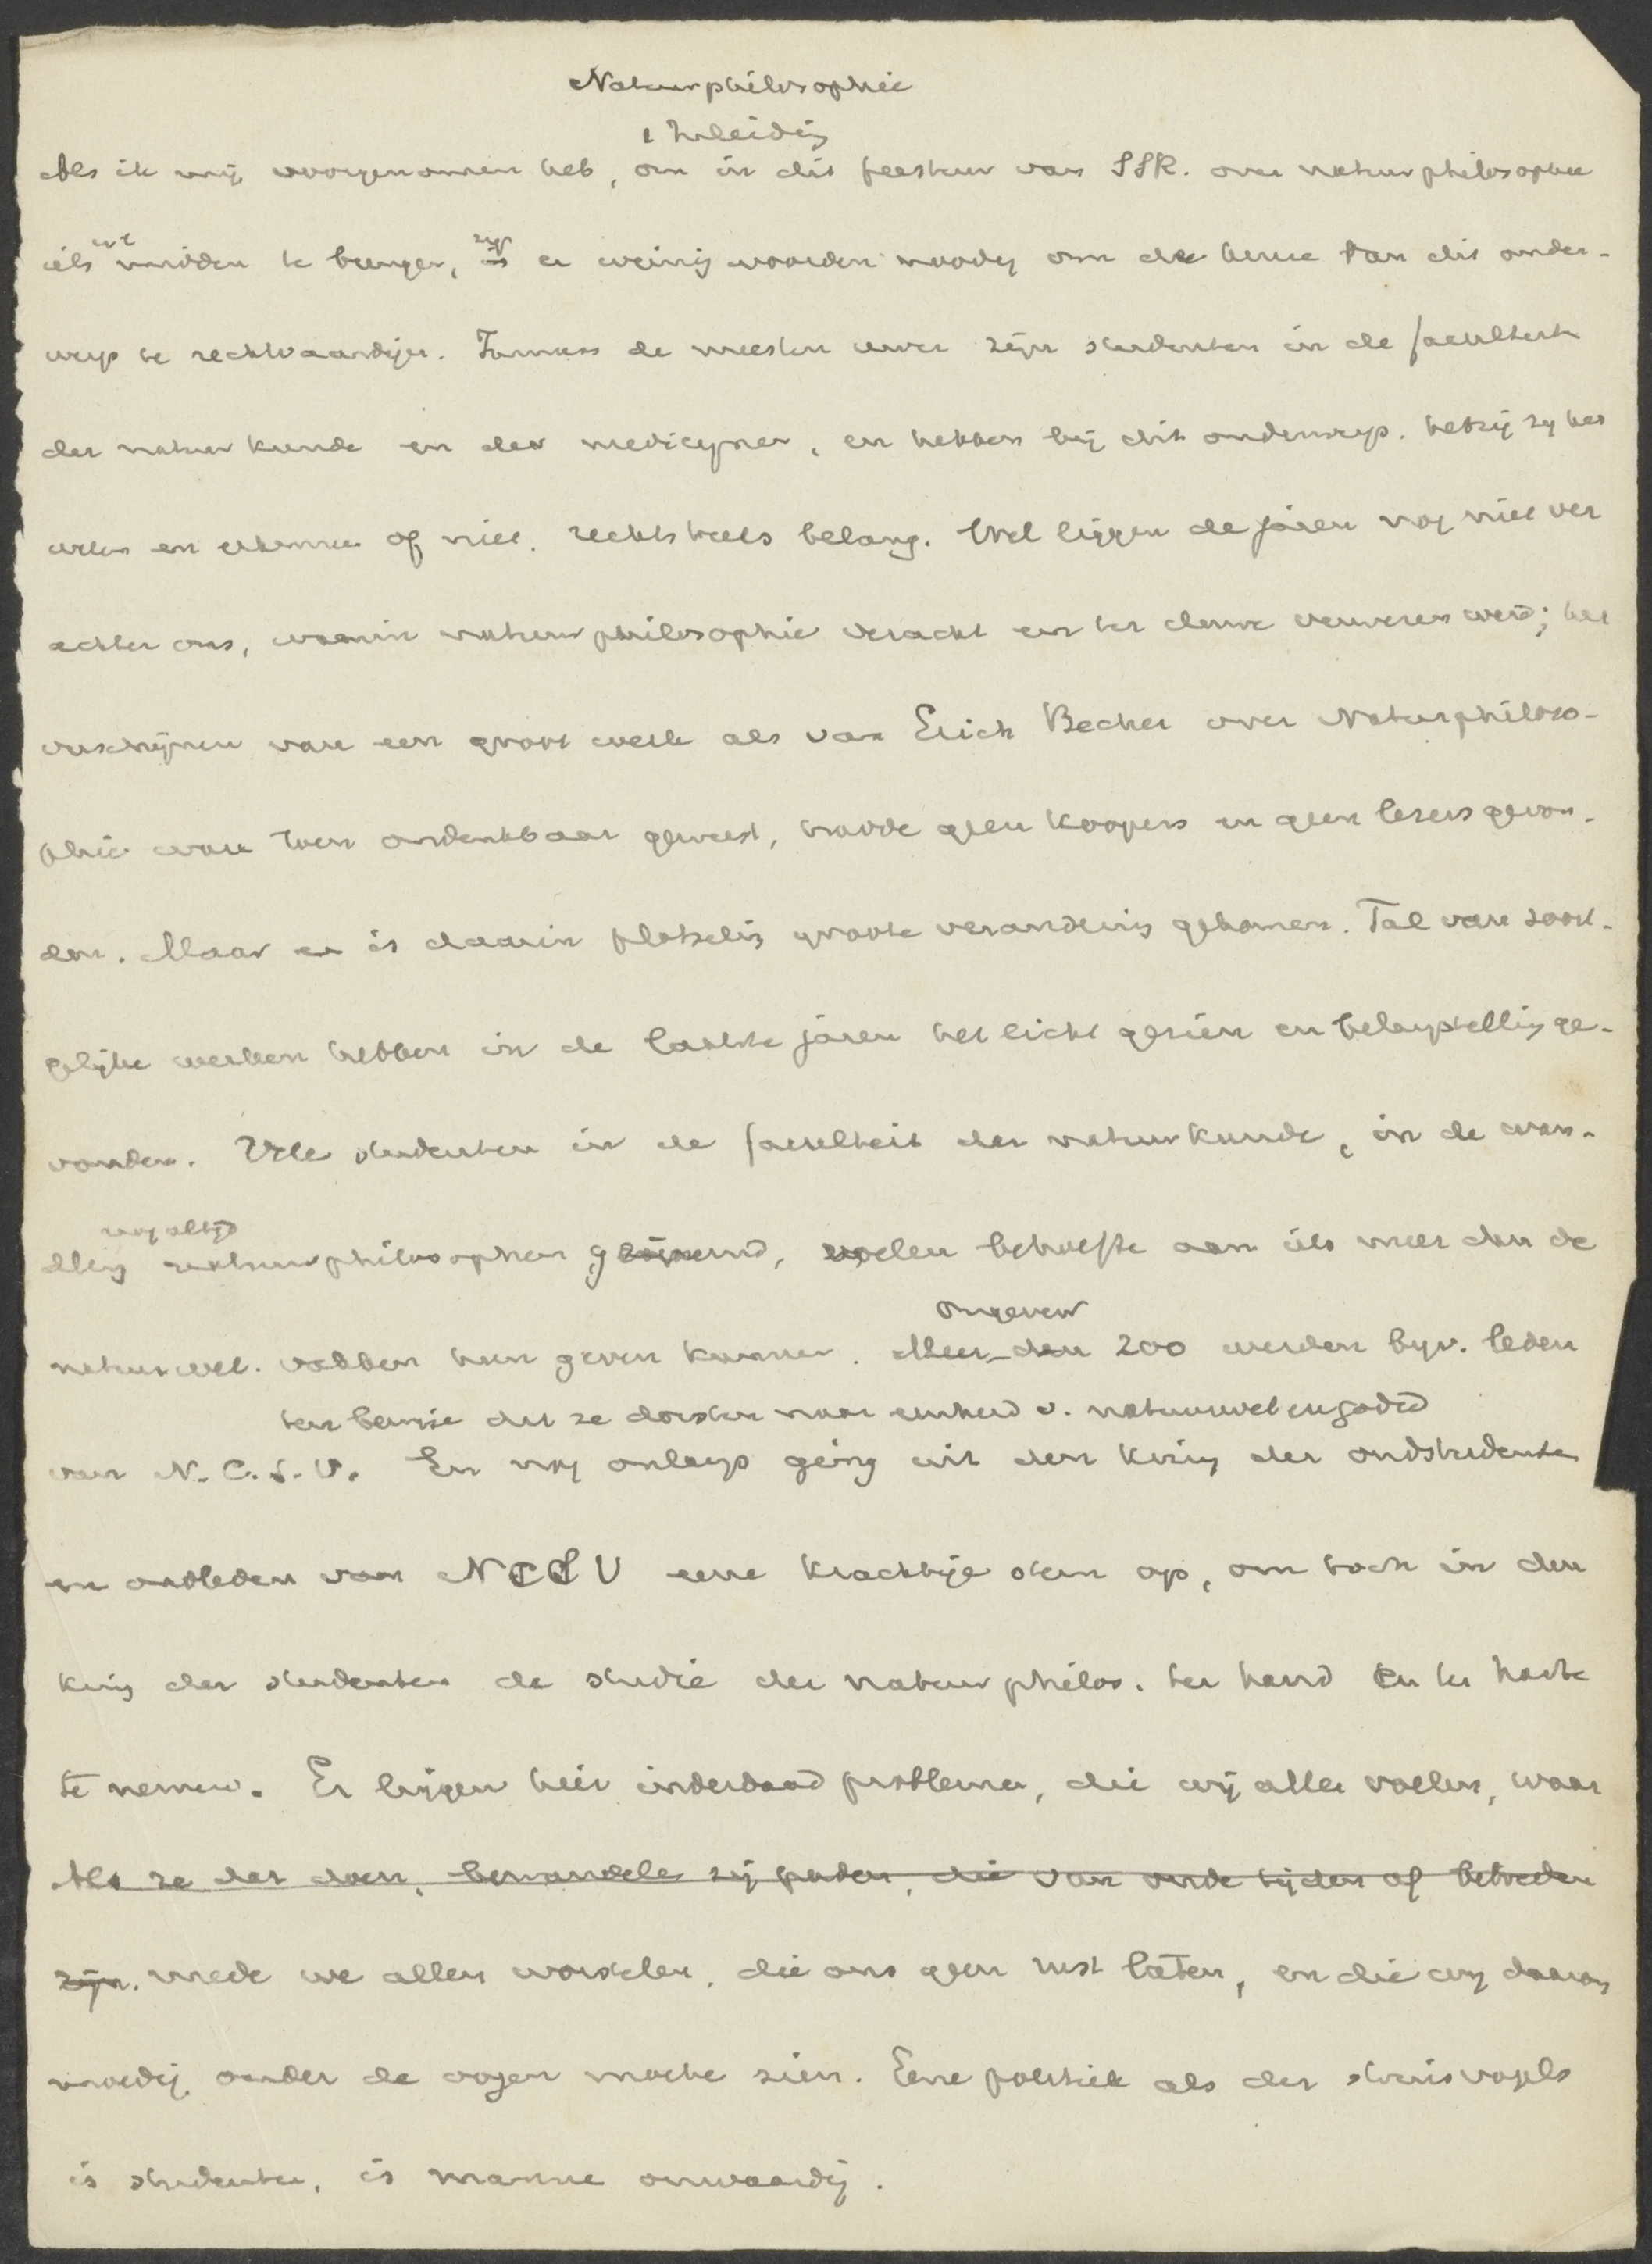 Natuurphilosophie
1 Inleiding
Als ik mij voorgenomen heb, om in dit feestuur van SSR. over natuurphilosophie
iets in 't midden te brengen, zijn er weinig woorden noodig om de keuze van dit onder-
werp te rechtvaardigen. Immers de meesten uwer zijn studenten in de faculteit
der natuurkunde en der medicijnen, en hebben bij dit onderwerp, hetzij zij het
weten en erkennen of niet, rechtstreeks belang. Wel liggen de jaren nog niet ver
achter ons, waarin natuurphilosophie veracht en ter deure verwezen werd; het
verschijnen van een groot werk als van Erich Becher over Naturphiloso-
phie ware toen ondenkbaar geweest, hadde geen koopers en geen lezers gevon-
den. Maar er is daarin plotseling groote verandering gekomen. Tal van soort-
gelijke werken hebben in de laatste jaren het licht gezien en belangstelling ge-
vonden. Vele studenten in de faculteit der natuurkunde, in de wan-
nog altijd
deling natuurphilosophen genoemd, voelen behoefte aan iets meer dan de
ongeveer
natuurwet. vakken hun geven kunnen. Meer dan 200 werden bijv. leden
ten bewijze dat ze dorsten naar eenheid v. natuurwet en godsd
van N.C.S.V. En nog onlangs ging uit den kring der oudstudenten
en oudleden van NCSV eene krachtige stem op, om toch in den
kring der studenten de studie der natuurphilos. ter hand en ter harte
te nemen. Er liggen hier inderdaad problemen, die wij allen voelen, waar
Als ze dat doen, bewandelen zij paden, die van oude tijden af betreden
zijn. mede we allen worstelen, die ons geen rust laten, en die wij daarom
moedig onder de oogen moeten zien. Eene politiek als der struisvogels
is studenten, is mannen onwaardig.